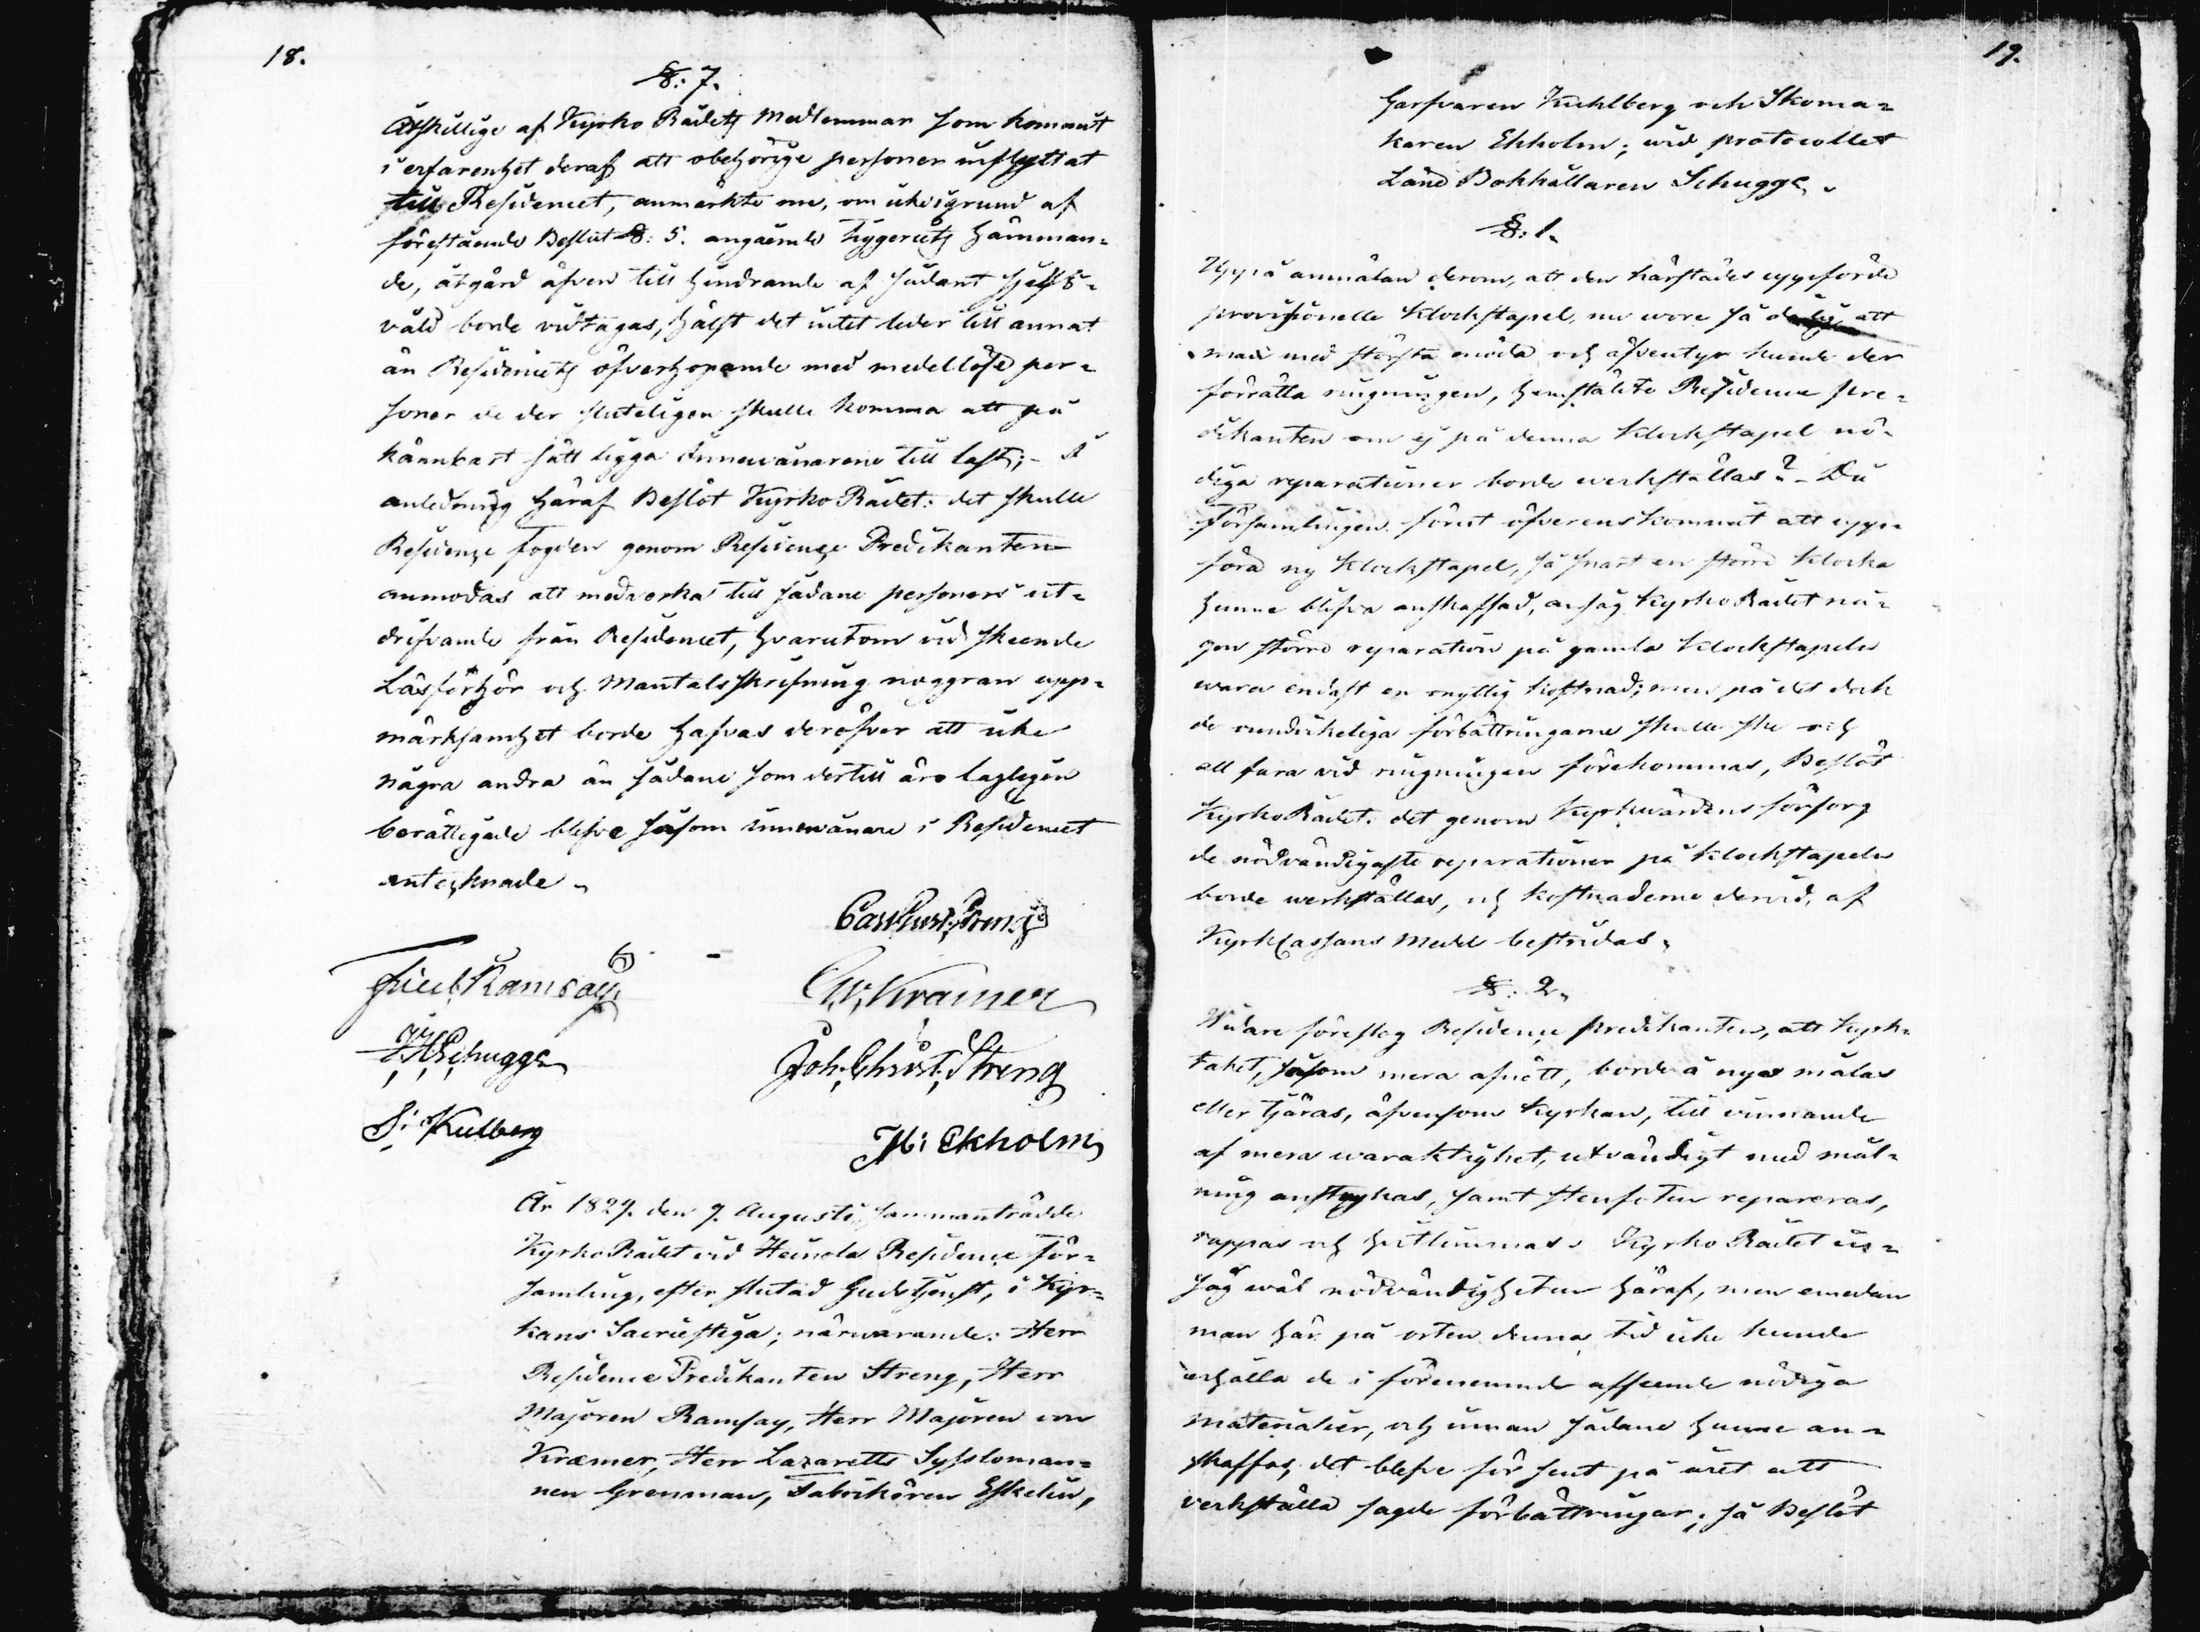 18.
§: 7.
Åtskillige af Kyrko Rådets Medlemmar som kommit
i erfarenhet deraf att obehörige personer inflyttat
till Residencet, anmärkte nu, om icke i grund af
föreståendе Beslut §: 5. angående Tiggeriets hämman=
de, åtgärd äfven till hindrande af sådant sjelfs=
våld borde vidtagas, hälst det intet leder till annat
än Residencets öfverhopande med medellöse per=
soner de der sluteligen skulle komma att på
kännbart sätt ligga Innevånarene till last; - I
anledning häraf Beslöt Kyrko Rådet: det skulle
Residence fogden genom Residence Predikanten
anmodas att medverka till sådane personers ut=
drifvande från Residencet, hvarutom vid skeende
Läsförhör och Mantalsskrifning noggran upp=
märksamhet borde hafvas deröfver att icke
några andra än sådane som dertill äro lagligen
berättigade blefve såsom innevånare i Residencet
antecknade.
Carl Gust: Streng
Fried. Ramsay
C. v. Kræmer
J. H. Schugge
Joh: Christ: Streng
S: Kulberg
H: Ekholm
År 1829. den 9. Augusti, sammanträdde
Kyrko Rådet vid Heinola Residence För=
samling, efter slutad Gudstjenst, i Kyr=
kans Sacristiga; närvarande: Herr
Residence Predikanten Streng, Herr
Majoren Ramsay, Herr Majoren von
Kræmer, Herr Lazaretts Sysloman=
nen Grenman, Fabrikören Eskelin,
19.
Garfvaren Kuhlberg och Skoma=
karen Ekholm; vid protocollet
Land Bokhållaren Schugge.
§: 1.
Uppå anmälan derom, att den härstädes uppförde
provisionelle Klockstapel, nu vore så dålig, att
man med största möda och äfventyr kunde der
förrätta ringningen, hemstälte Residence pre=
dikanten om ej på denna Klockstapel nö=
diga reparationer borde verkställas? - Då
Församlingen förut öfverenskommit att upp=
föra ny Klockstapel, så snart en större Klocka
hunne blifva anskaffad, ansåg Kyrko Rådet nå=
gon större reparation på gamla Klockstapeln
vara endast en onyttig kostnad; men på det dock
de oundvikeliga förbättringarne skulle ske och
all fara vid ringningen förekommas, Beslöt
Kyrko Rådet: det genom Kyrkvärdens försorg
de nödvändigaste reparationer på Klockstapeln
borde verkställas, och kostnaderne dervid, af
Kyrk Cassans Medel bestridas.
§: 2.
Vidare föreslog Residence predikanten, att Kyrk=
taket, såsom mera afnött, borde å nyo målas
eller tjäras, äfvensom Kyrkan, till vinnande
af mera varaktighet, utvändigt med mål=
ning anstrykas, samt stenfoten repareras,
rappas och hvitlimmas. Kyrko Rådet in=
såg väl nödvändigheten häraf, men emedan
man här på orten denna tid icke kunde
erhålla de i förenemnde afseende nödiga
materialier, och innan sådane hunne an=
skaffas, det blefve för sent på året att
verkställa sagde förbättringar; så Beslöt